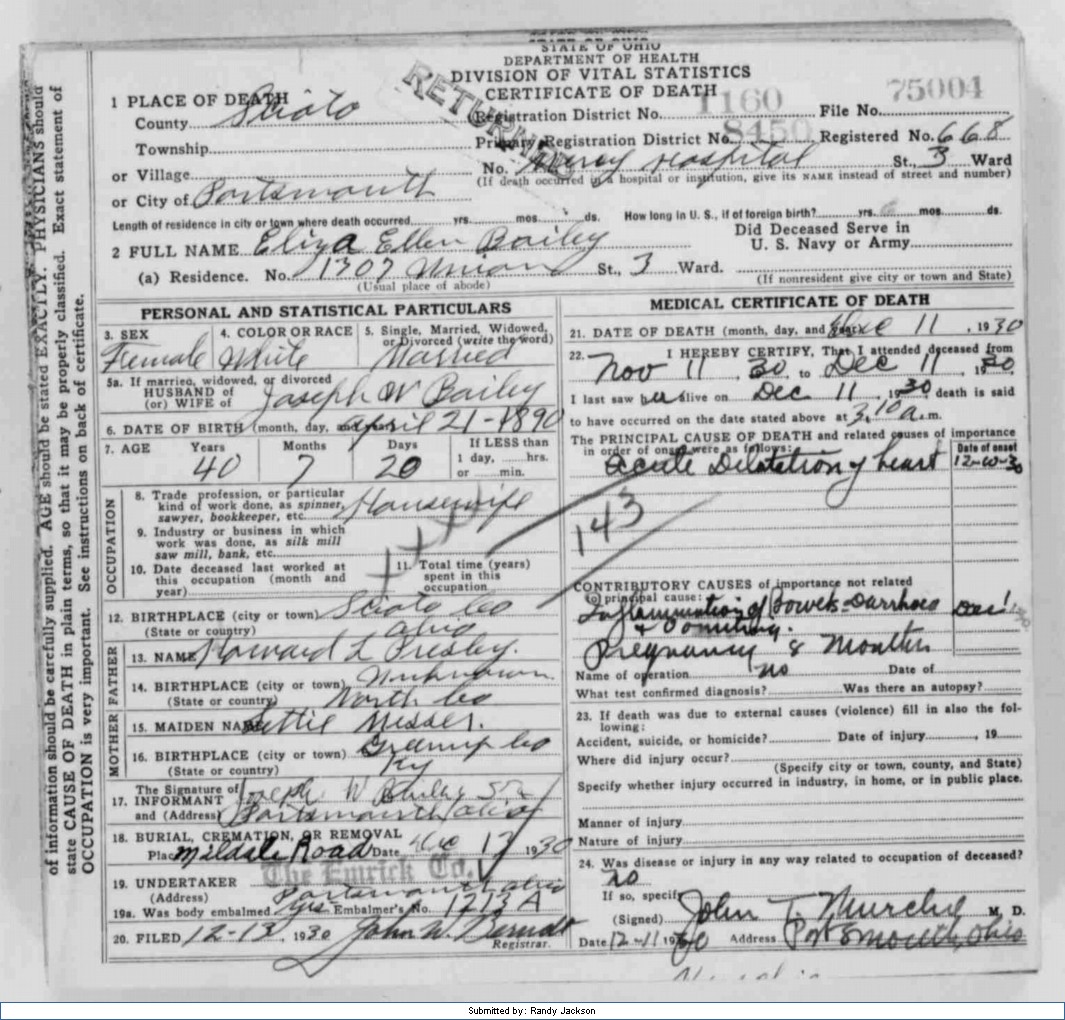 STATE OF OHIO
DEPARTMENT OF HEALTH
DIVISION OF VITAL STATISTICS
CERTIFICATE OF DEATH
RETURNED
1 PLACE OF DEATH
County Scioto
Registration District No. 1160
File No. 75004
Township
Primary Registration District No. 8450
Registered No. 668
or Village
No. Mercy Hospital St., 3 Ward
(If death occurred in a hospital or institution, give its NAME instead of street and number)
or City of Portsmouth
Length of residence in city or town where death occurred yrs. mos. ds. How long in U. S., if of foreign birth? yrs. mos. ds.
2 FULL NAME Eliza Ellen Bailey
Did Deceased Serve in
U. S. Navy or Army
(a) Residence. No. 1307 Union St., 3 Ward.
(Usual place of abode)
(If nonresident give city or town and State)
PERSONAL AND STATISTICAL PARTICULARS
3. SEX
Female
4. COLOR OR RACE
White
5. Single, Married, Widowed,
or Divorced (write the word)
Married
5a. If married, widowed, or divorced
HUSBAND of
(or) WIFE of Joseph W Bailey
6. DATE OF BIRTH (month, day, and year) April 21-1890
7. AGE Years Months Days If LESS than
40 7 20 1 day, hrs.
or min.
OCCUPATION
8. Trade, profession, or particular
kind of work done, as spinner,
sawyer, bookkeeper, etc. Housewife
9. Industry or business in which
work was done, as silk mill
saw mill, bank, etc.
10. Date deceased last worked at
this occupation (month and
year)
11. Total time (years)
spent in this
occupation
12. BIRTHPLACE (city or town) Scioto Co
(State or country) Ohio
FATHER
13. NAME Howard L Presley.
14. BIRTHPLACE (city or town) Unknown
(State or country) North Co
MOTHER
15. MAIDEN NAME Messer.
16. BIRTHPLACE (city or town) Greenup Co
(State or country) Ky
17. The Signature of
INFORMANT Joseph W Bailey Sr
and (Address) Portsmouth Ohio
18. BURIAL, CREMATION, OR REMOVAL
Place Road Date Dec 1930
19. UNDERTAKER The Emrick Co.
(Address) Portsmouth Ohio
19a. Was body embalmed yes Embalmer's No. 1213 A
20. FILED 12-13, 1930 John W.
Registrar.
MEDICAL CERTIFICATE OF DEATH
21. DATE OF DEATH (month, day, and year) Dec 11, 1930
22. I HEREBY CERTIFY, That I attended deceased from
Nov 11, 30, to Dec 11, 1930
I last saw her alive on Dec 11, 1930 death is said
to have occurred on the date stated above at 3.10 a.m.
The PRINCIPAL CAUSE OF DEATH and related causes of importance
in order of onset were as follows:
Date of onset
Acute Dilatation of heart 12-10-30
143
CONTRIBUTORY CAUSES of importance not related
to principal cause:
Inflammation of Bowels-Diarrhoea Dec 1 30
& Vomiting.
Pregnancy 8 Months
Name of operation no Date of
What test confirmed diagnosis? Was there an autopsy?
23. If death was due to external causes (violence) fill in also the fol-
lowing:
Accident, suicide, or homicide? Date of injury, 19
Where did injury occur?
(Specify city or town, county, and State)
Specify whether injury occurred in industry, in home, or in public place.
Manner of injury
Nature of injury
24. Was disease or injury in any way related to occupation of deceased?
no
If so, specify
(Signed) John T. M. D.
Date 12-11 1930 Address Portsmouth, Ohio
of information should be carefully supplied. AGE should be stated EXACTLY. PHYSICIANS should
state CAUSE OF DEATH in plain terms, so that it may be properly classified. Exact statement of
OCCUPATION is very important. See instructions on back of certificate.
Submitted by: Randy Jackson